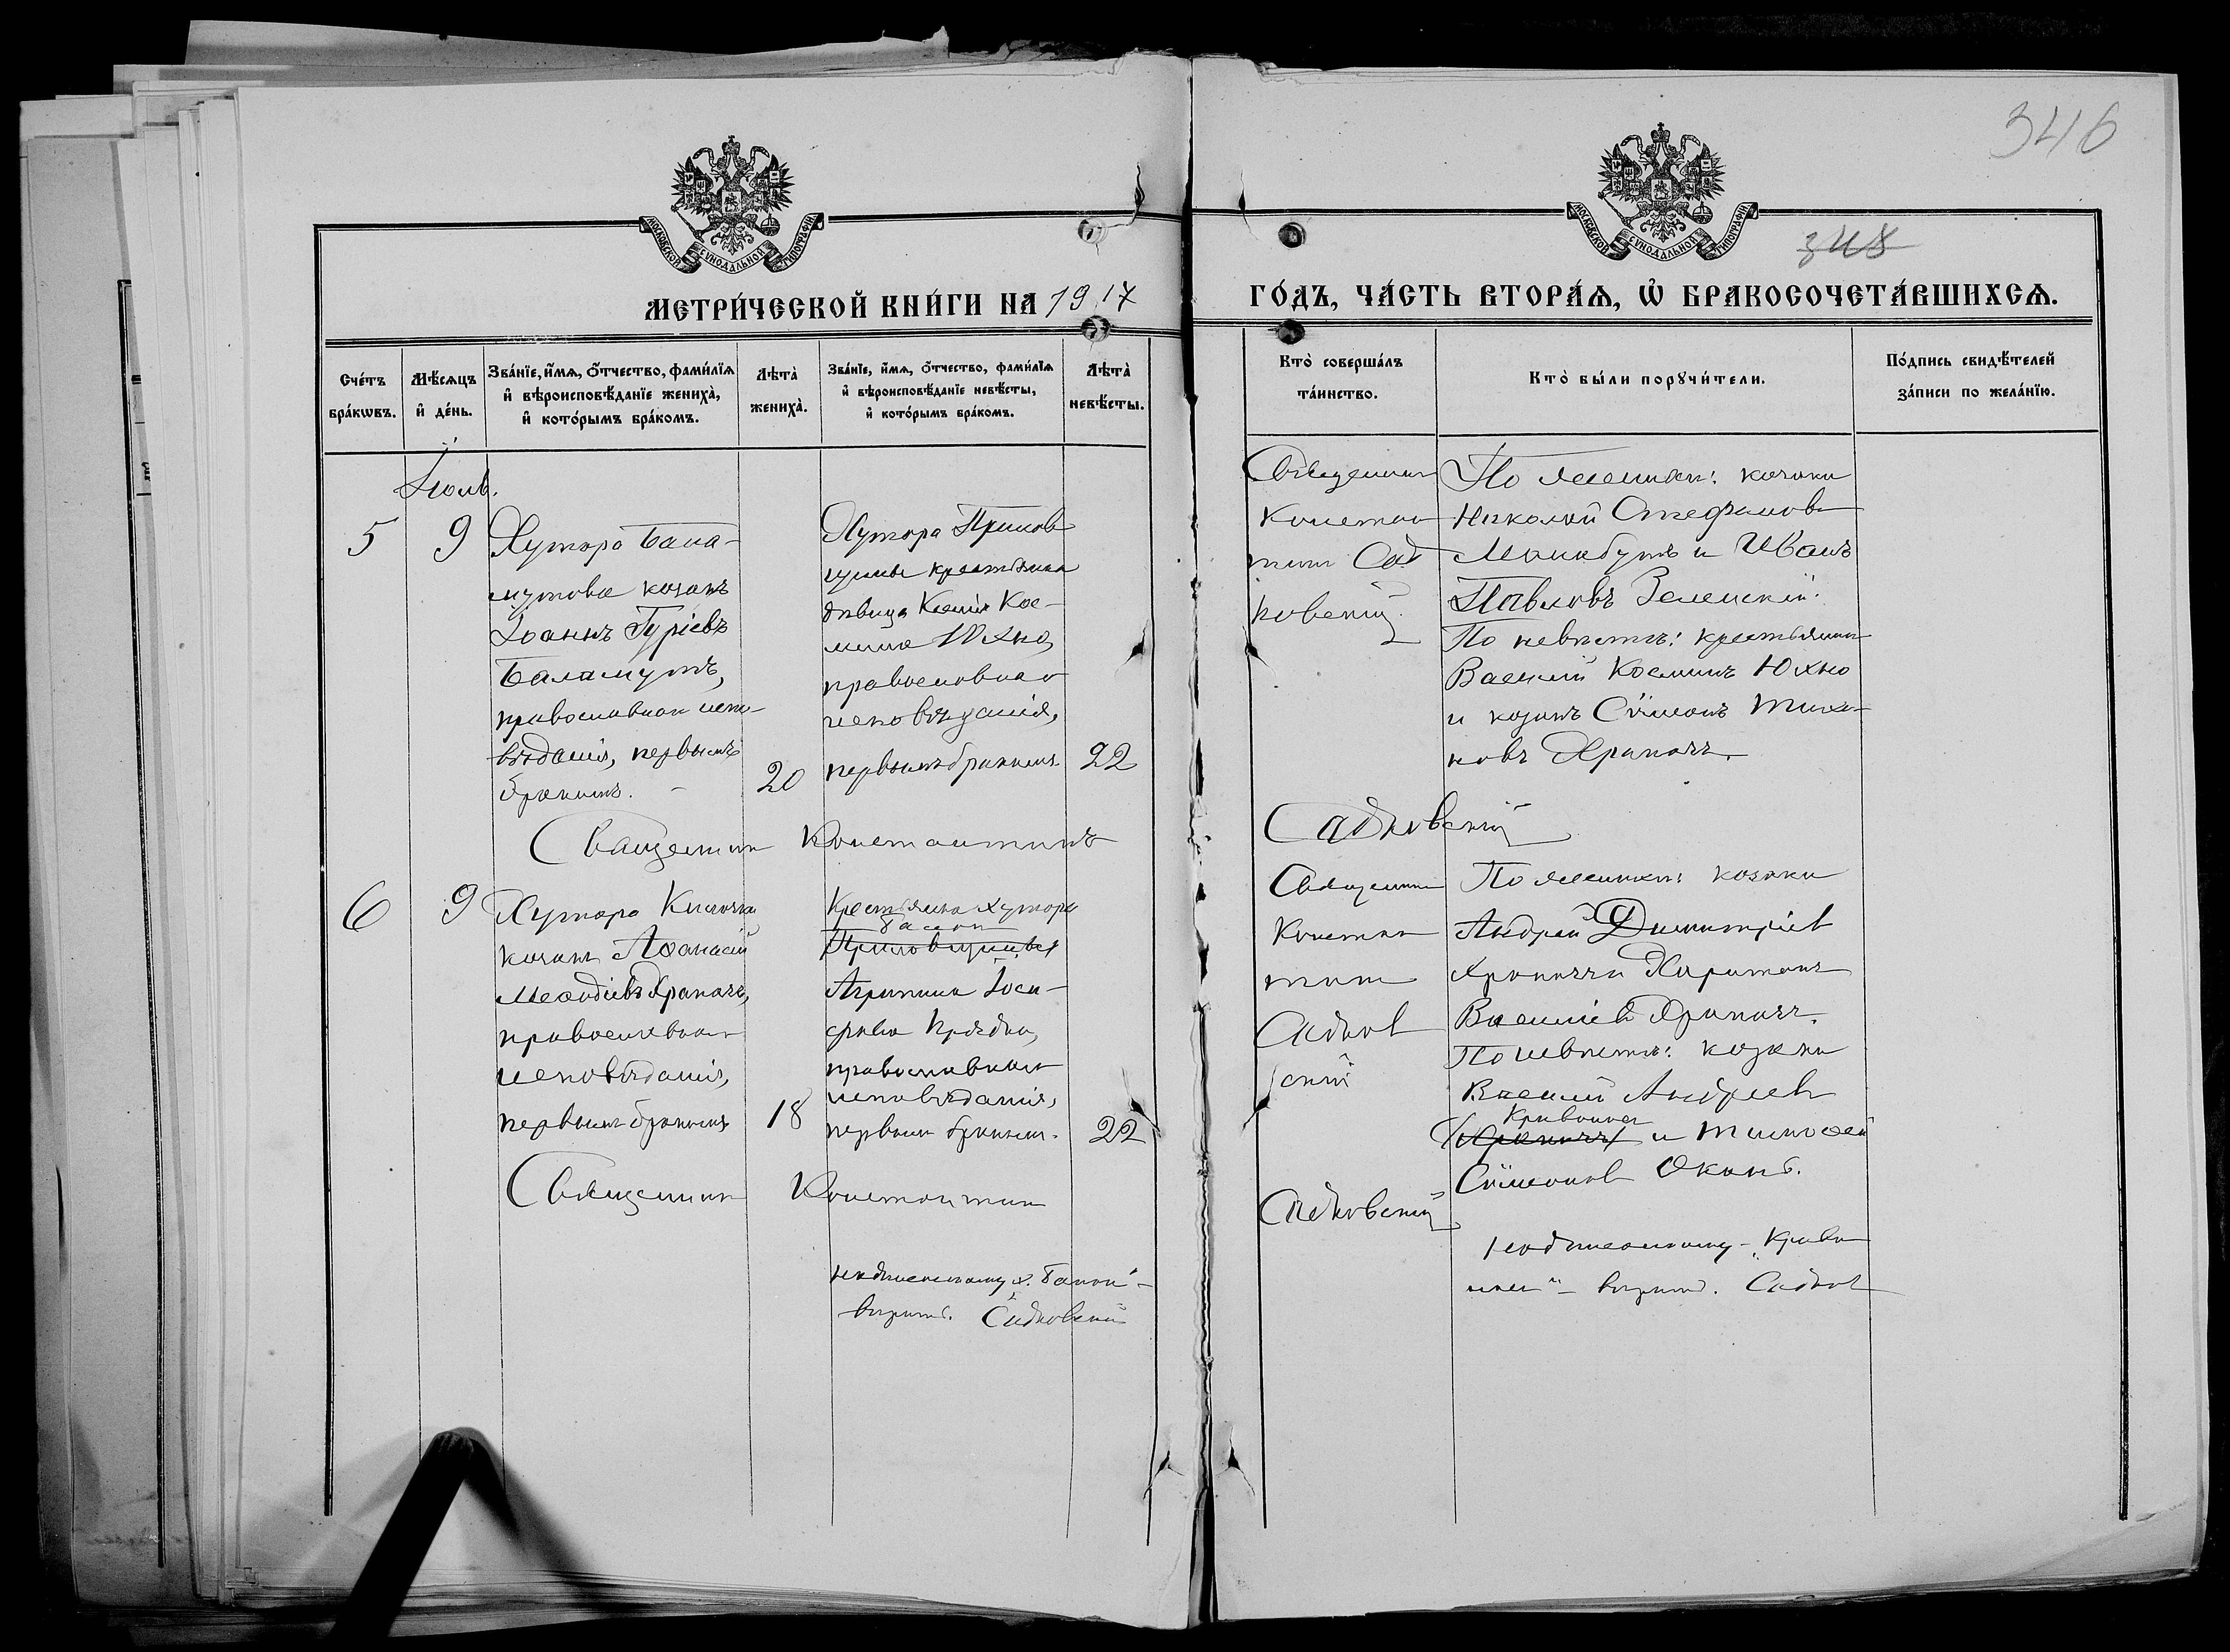 346
348
МОСКОВСКОЙ СУНОДАЛЬНОЙ ТИПОГРАФІИ
МОСКОВСКОЙ СУНОДАЛЬНОЙ ТИПОГРАФІИ
МЕТРИ́ЧЕСКОЙ КНИ́ГИ НА 1917
ГО́ДЪ, ЧА́СТЬ ВТОРА́Ѧ, Ѽ БРАКОСОЧЕТА́ВШИХСѦ.
Сче́тъ бра́кѡвъ.
Мѣ́сѧцъ и҆ де́нь.
Зва́нїе, и҆́мѧ, ѻ҆́тчество, фами́лїѧ
и҆ вѣроисповѣ́данїе жениха̀,
и҆ кото́рымъ бра́комъ.
Лѣта̀ жениха̀.
Зва́нїе, и҆́мѧ, ѻ҆́тчество, фами́лїѧ
и҆ вѣроисповѣ́данїе невѣ́сты,
и҆ кото́рымъ бра́комъ.
Лѣта̀ невѣ́сты.
Кто̀ соверша́лъ та́инство.
Кто̀ бы́ли порꙋчи́тели.
По́дпись свидѣ́телей за́писи по жела́нїю.
Іюль.
5
9
Хутора Бала-
мутова козакъ
Іоаннъ Гуріевъ
Баламутъ,
православнаго испо-
вѣданія, первымъ
бракомъ.
20
Хутора
крестьянка
дѣвица Ксенія Кос-
мина Юхно,
православнаго
исповѣданія,
первымъ бракомъ.
22
Священникъ
Констан
тинъ Сад
ковскій.
По женихѣ: козаки
Николай Стефановъ
и Иванъ
Павловъ Зеленскій.
По невѣстѣ: крестьянинъ
Василій Косминъ Юхно
и козакъ Сѵмеонъ Тихо-
новъ Храпачъ.
Священникъ Константинъ Садковскій
6
9
Хутора
козакъ Аѳанасій
Меѳодіевъ Храпачъ,
православнаго
исповѣданія,
первымъ бракомъ
18
Крестьянка хутора
Агрипина Іоси-
фова
православнаго
исповѣданія,
первымъ бракомъ.
22
Священникъ
Констан
тинъ
Садков
скій
По женихѣ: козаки
Андрей Димитріев
Храпачъ и Харитонъ
Василіев Храпачъ.
По невѣстѣ: козаки
Василій Андреев
Храпачъ и Тимоѳей
Сѵмеонов
Священникъ Константин Садковскій
Надписанному х.
вѣрить. Садковскій
Надписанному
вѣрить. Садков